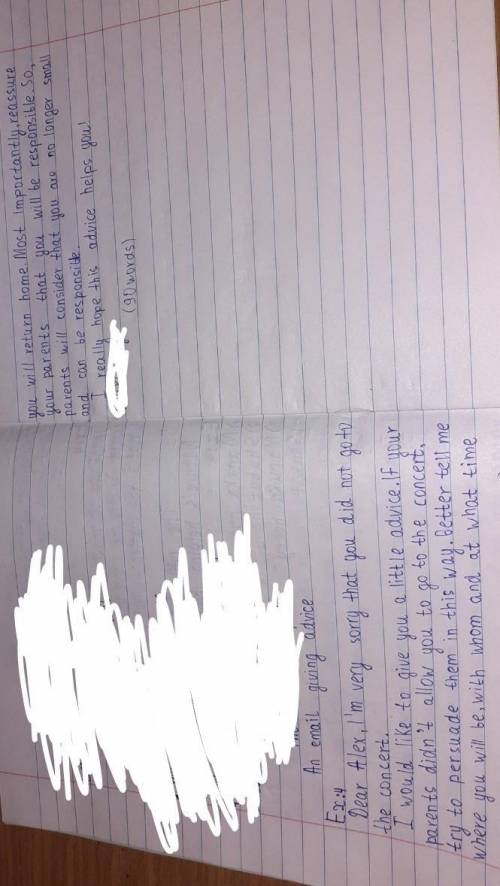 An email giving advice
Ex:4
Dear Alex, I'm very sorry that you did not go to
the concert.
I would like to give you a little advice. If your
parents didn't allow you to go to the concert,
try to persuade them in this way. Better tell me
where you will be, with whom and at what time
you will return home. Most importantly, reassure
your parents that you will be responsible. So,
parents will consider that you are no longer small
and can be responside.
I really hope this advice helps you!
(90 words)